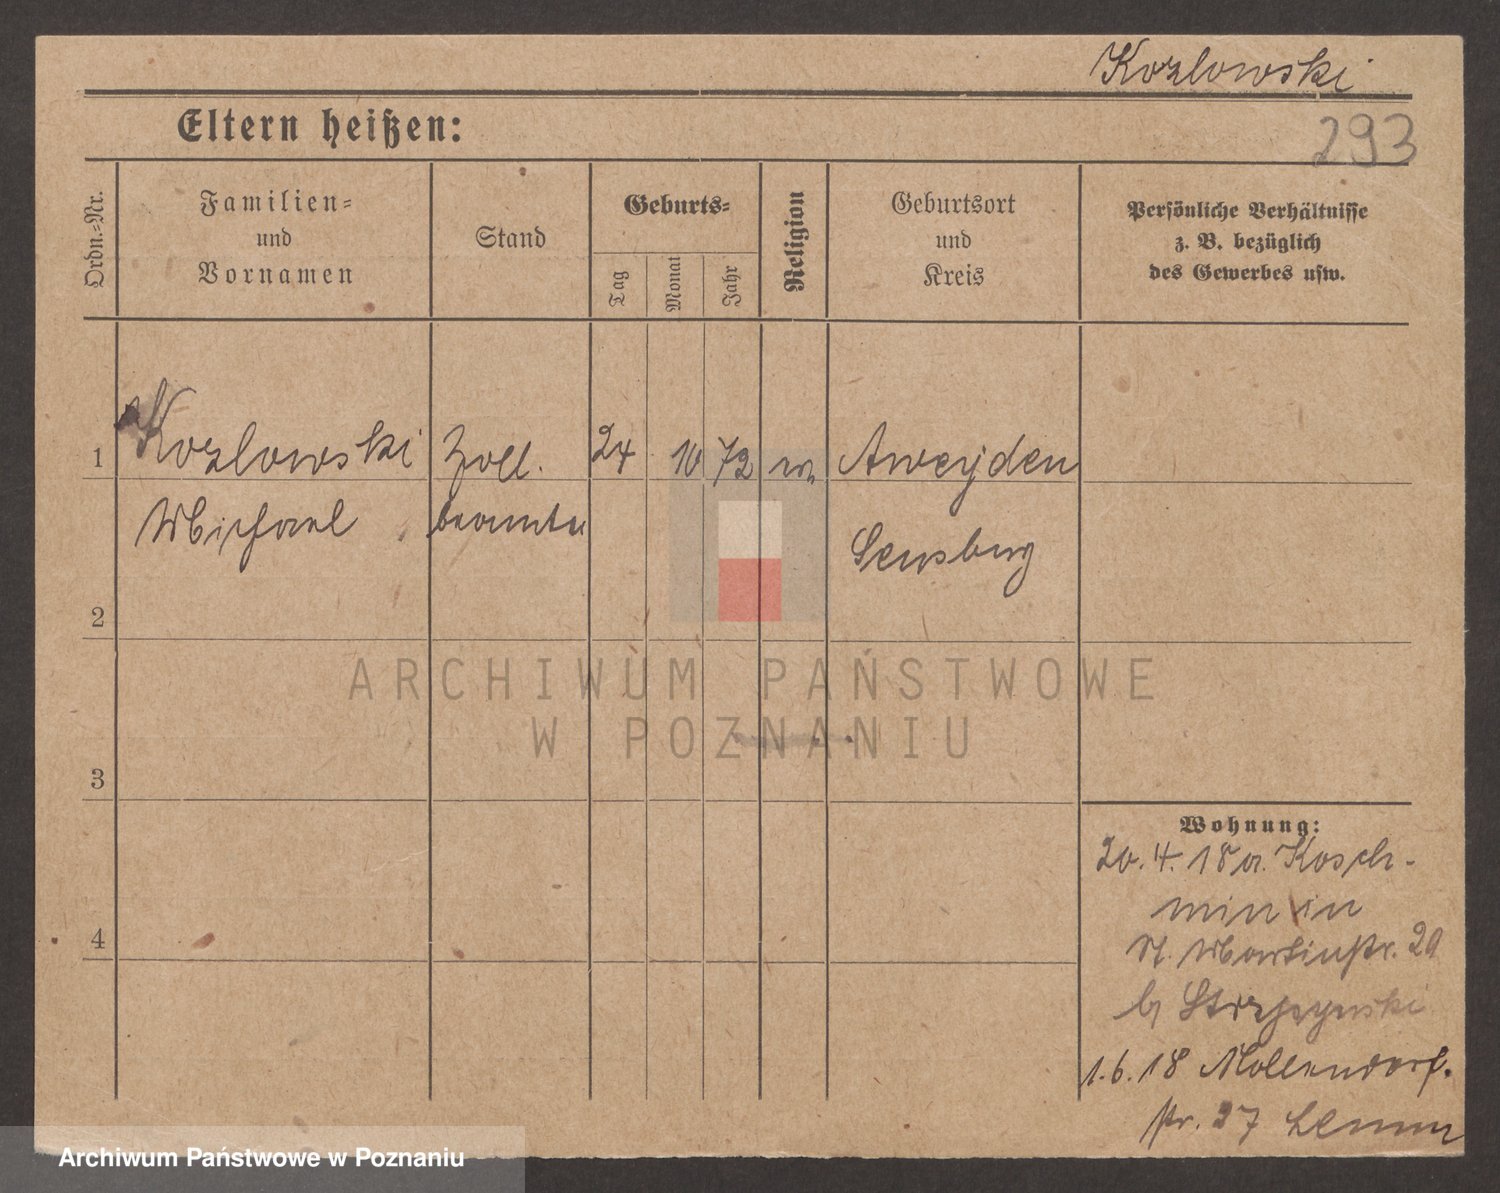 Kozlowski
Eltern heißen:
293
Ordn.-Nr.
Familien-
und
Vornamen
Stand
Geburts-
Tag
Monat
Jahr
Religion
Geburtsort
und
Kreis
Persönliche Verhältnisse
z. B. bezüglich
des Gewerbes usw.
1
Kozlowski
Zoll.
24
10
72
Aweyden
Michael
beamter
Sensburg
2
ARCHIWUM PAŃSTWOWE
W POZNANIU
3
Wohnung:
20. 4. 18 a. Kosch-
min in
St. Martinstr.
b/
4
1. 6. 18 Mollendorf.
str. 27
Archiwum Państwowe w Poznaniu